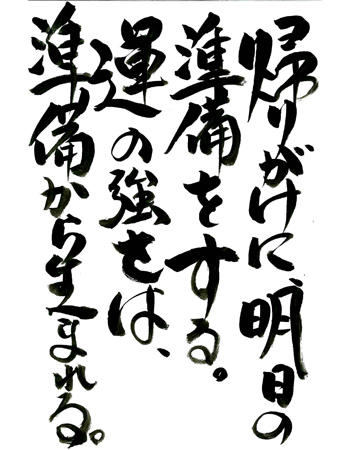 帰りがけに、明日の
準備をする。
運の強さは、
準備から生まれる。